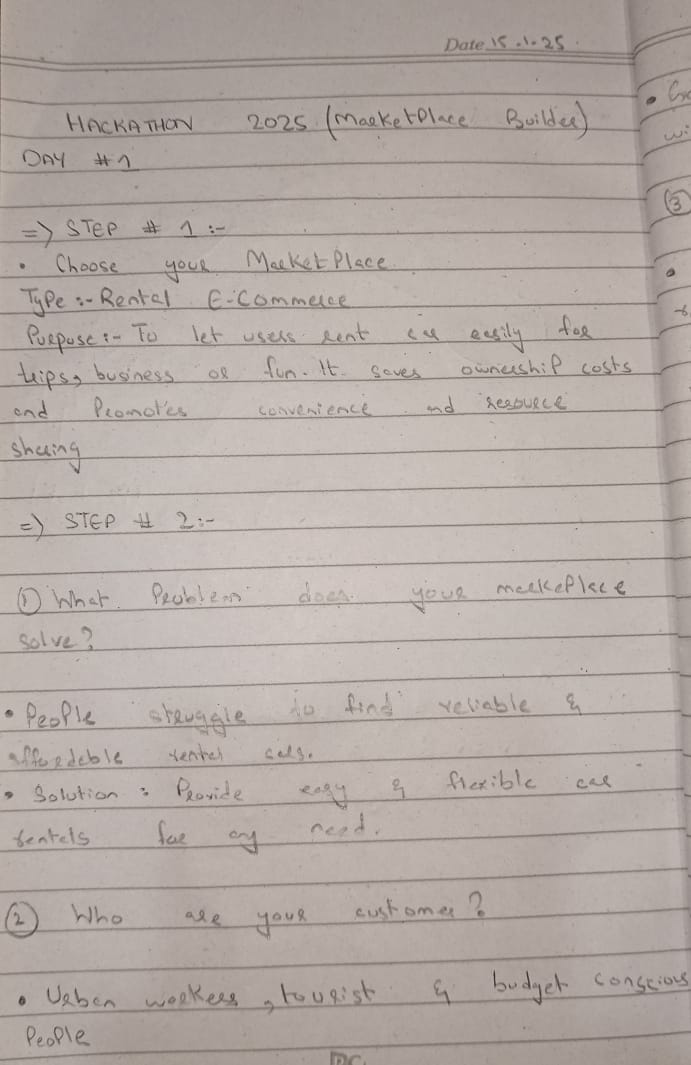 Date 15.1.25
HACKATHON 2025 (MarketPlace Builder)
DAY #1
=> STEP # 1 :-
• Choose your MarketPlace
Type :- Rental E-Commerce
Purpose :- To let users rent car easily for
trips, business or fun. It saves ownership costs
and Promotes convenience and resource
sharing
=> STEP # 2:-
① What Problem does your markeplace
solve?
• People struggle to find reliable &
affordable rental cars.
• Solution : Provide easy & flexible car
rentals for any need.
② Who are your customer?
• Urban workers, tourist & budget conscious
People
③